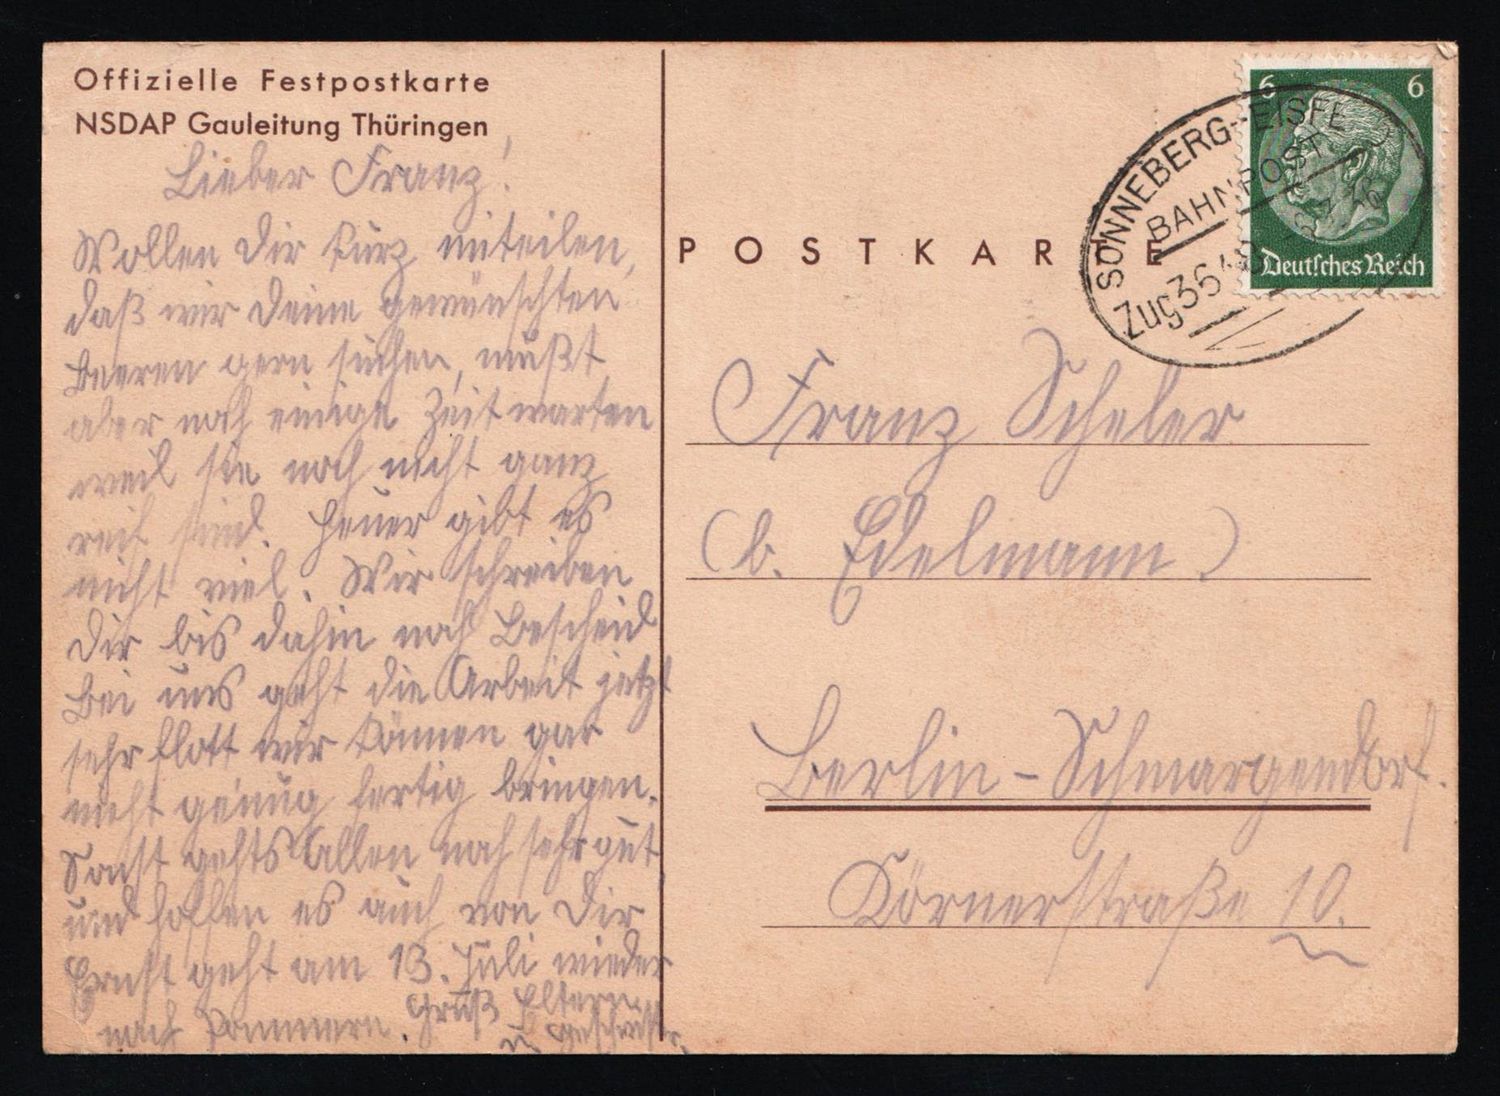 Offizielle Festpostkarte
NSDAP Gauleitung Thüringen
Lieber Franz!
Wollen Dir kurz mitteilen,
daß wir Deine gewünschten
Beeren gern suchen, mußt
aber noch einige Zeit warten
weil sie noch nicht ganz
reif sind. Heuer gibt es
nicht viel. Wir schreiben
Dir bis dahin noch Bescheid
Bei uns geht die Arbeit jetzt
sehr flott wir können gar
nicht genug fertig bringen.
Sonst gehts Allen noch sehr gut
und hoffen es auch von Dir
Ernst geht am 13. Juli wieder
nach Pommern. Gruß Eltern
u. Geschwister.
POSTKARTE
6 6
Deutsches Reich
SONNEBERG-EISFE
BAHNPOST
Zug 364
Franz Scheler
(b. Edelmann)
Berlin-Schmargendorf.
Körnerstraße 10.